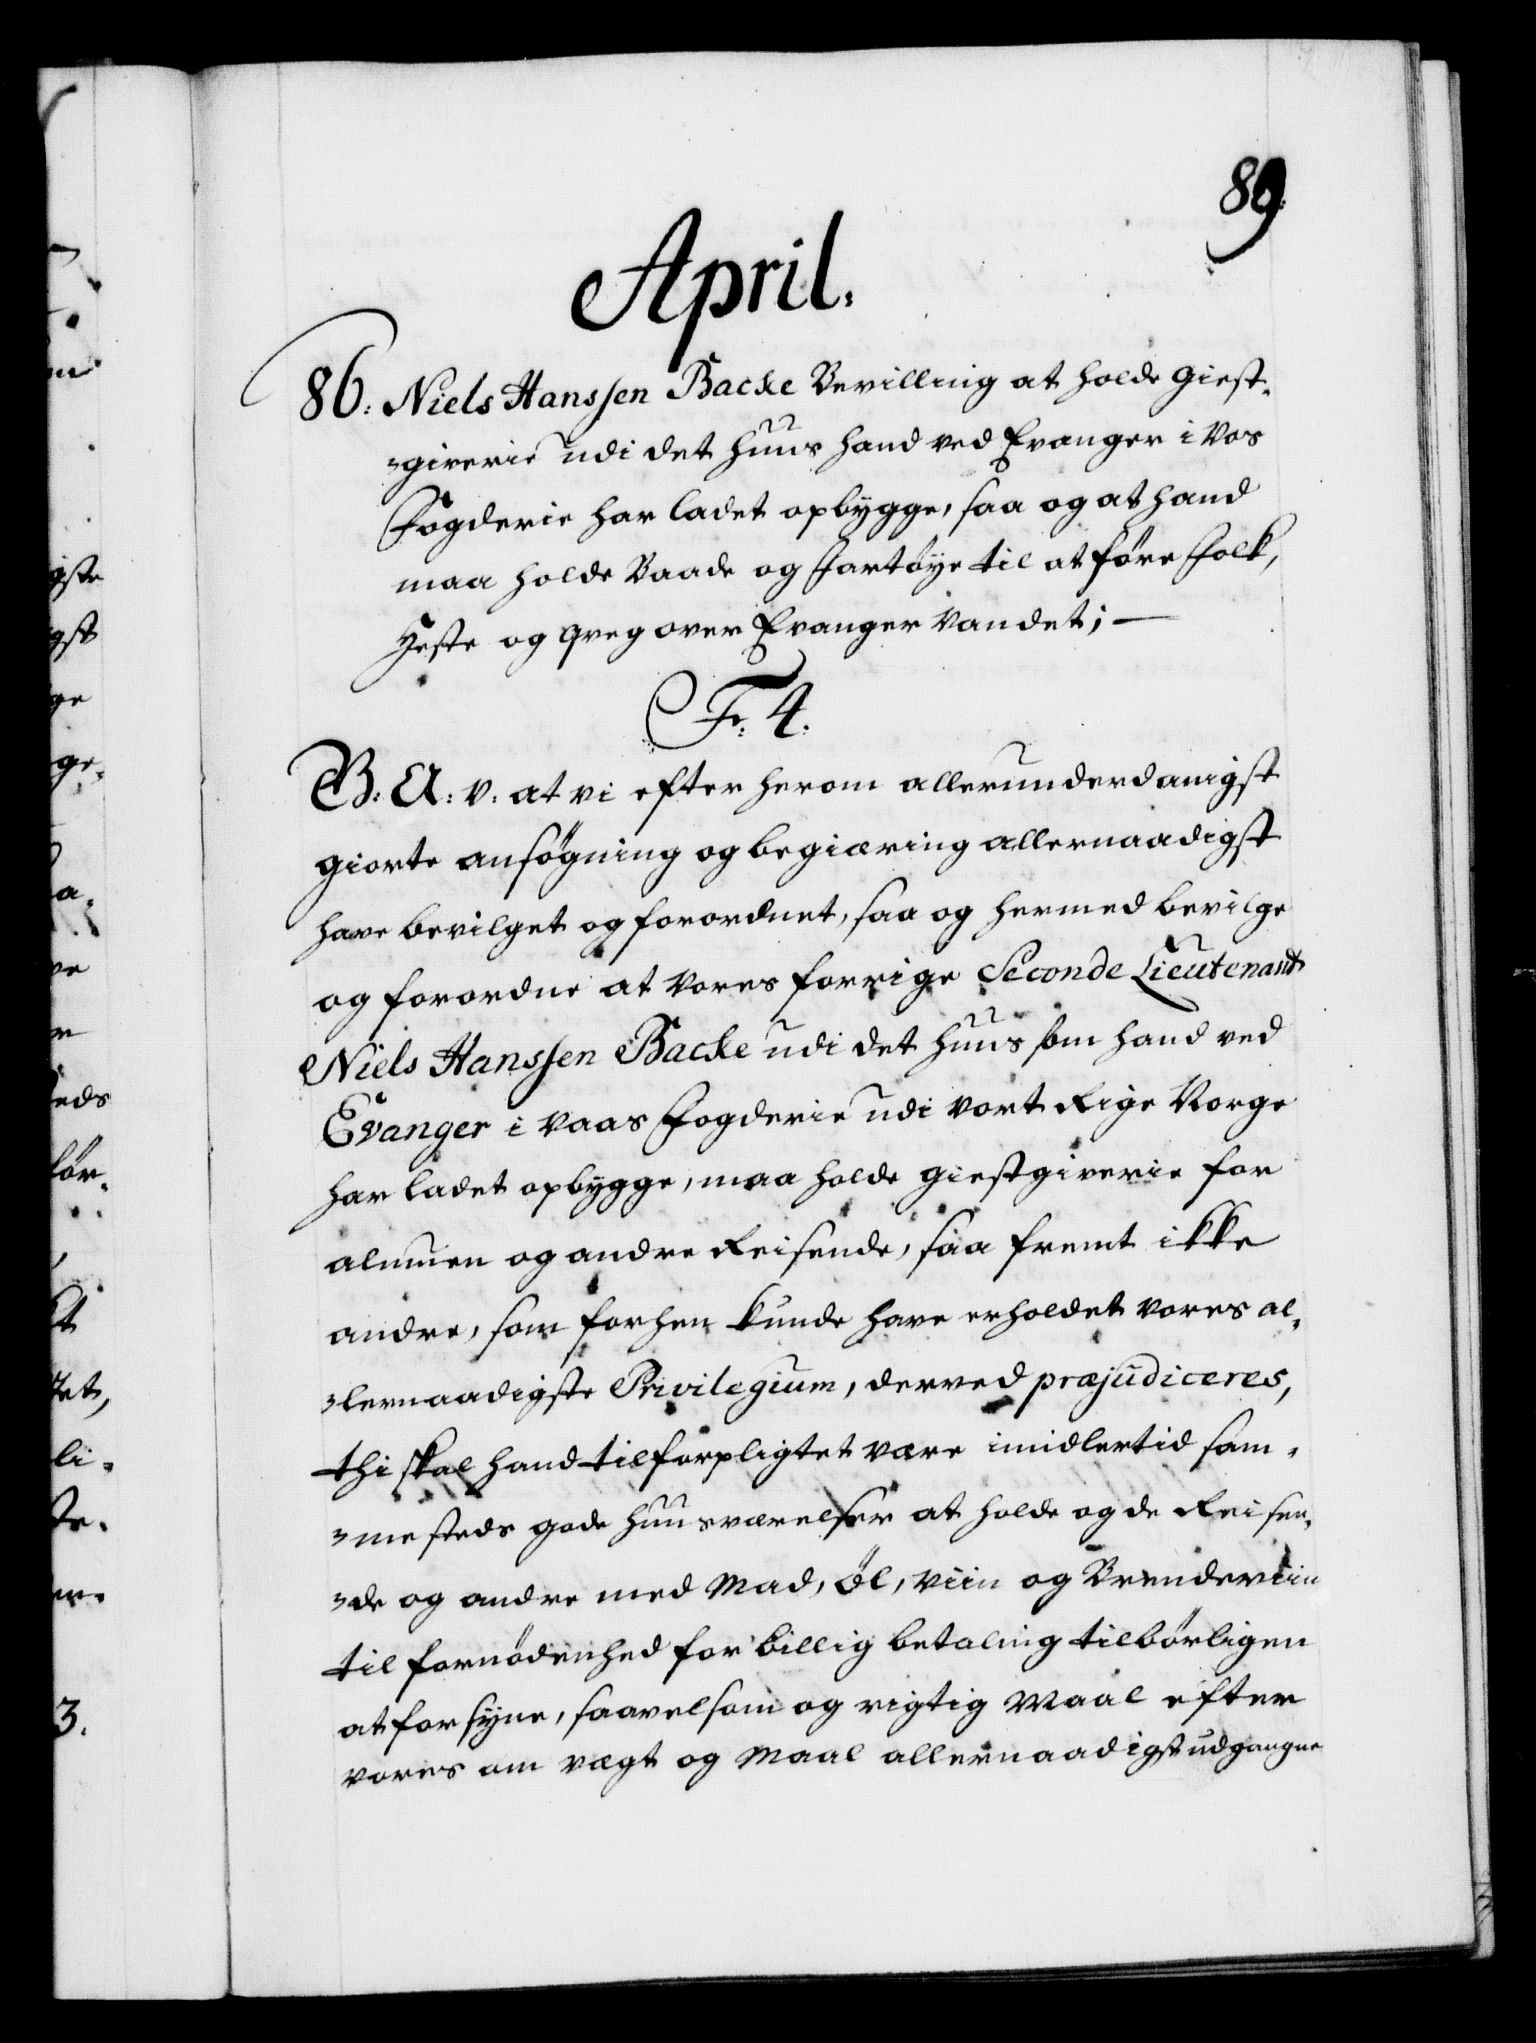 89.
April.
86. Niels Hanssen Backe Bevilling at holde giest-
=giverie udi det huus hand ved Evanger i Vos
Fogderie har ladet opbygge, saa og at hand
maa holde Baade og Fartøye til at føre Folk,
Heste og qveg over Evanger Vandet; —
Fr: 4.
B: A: v: at vi efter herom allerunderdanigst
giorte ansøgning og begiæring allernaadigst
have bevilget og forordnet, saa og hermed bevilge
og forordne at Vores forrige Seconde Lieutenant
Niels Hanssen Backe udi det huus som hand ved
Evanger i Vaas Fogderie udi Vort Rige Norge
har ladet opbygge, maa holde giestgiverie for
almuen og andre Reisende, saa fremt ikke
andre, som forhen kunde have erholdet Vores al-
=lernaadigste Privilegium, derved præjudiceres,
thi skal hand tilforpligtet være imidlertid sam-
=mesteds gode huusværelser at holde og de Reisen-
=de og andre med Mad, Øl, Viin og Brendeviin
til fornødenhed for billig betaling tilbørligen
at forsyne, saavelsom og rigtig Maal efter
vores om vegt og Maal allernaadigst udgangne